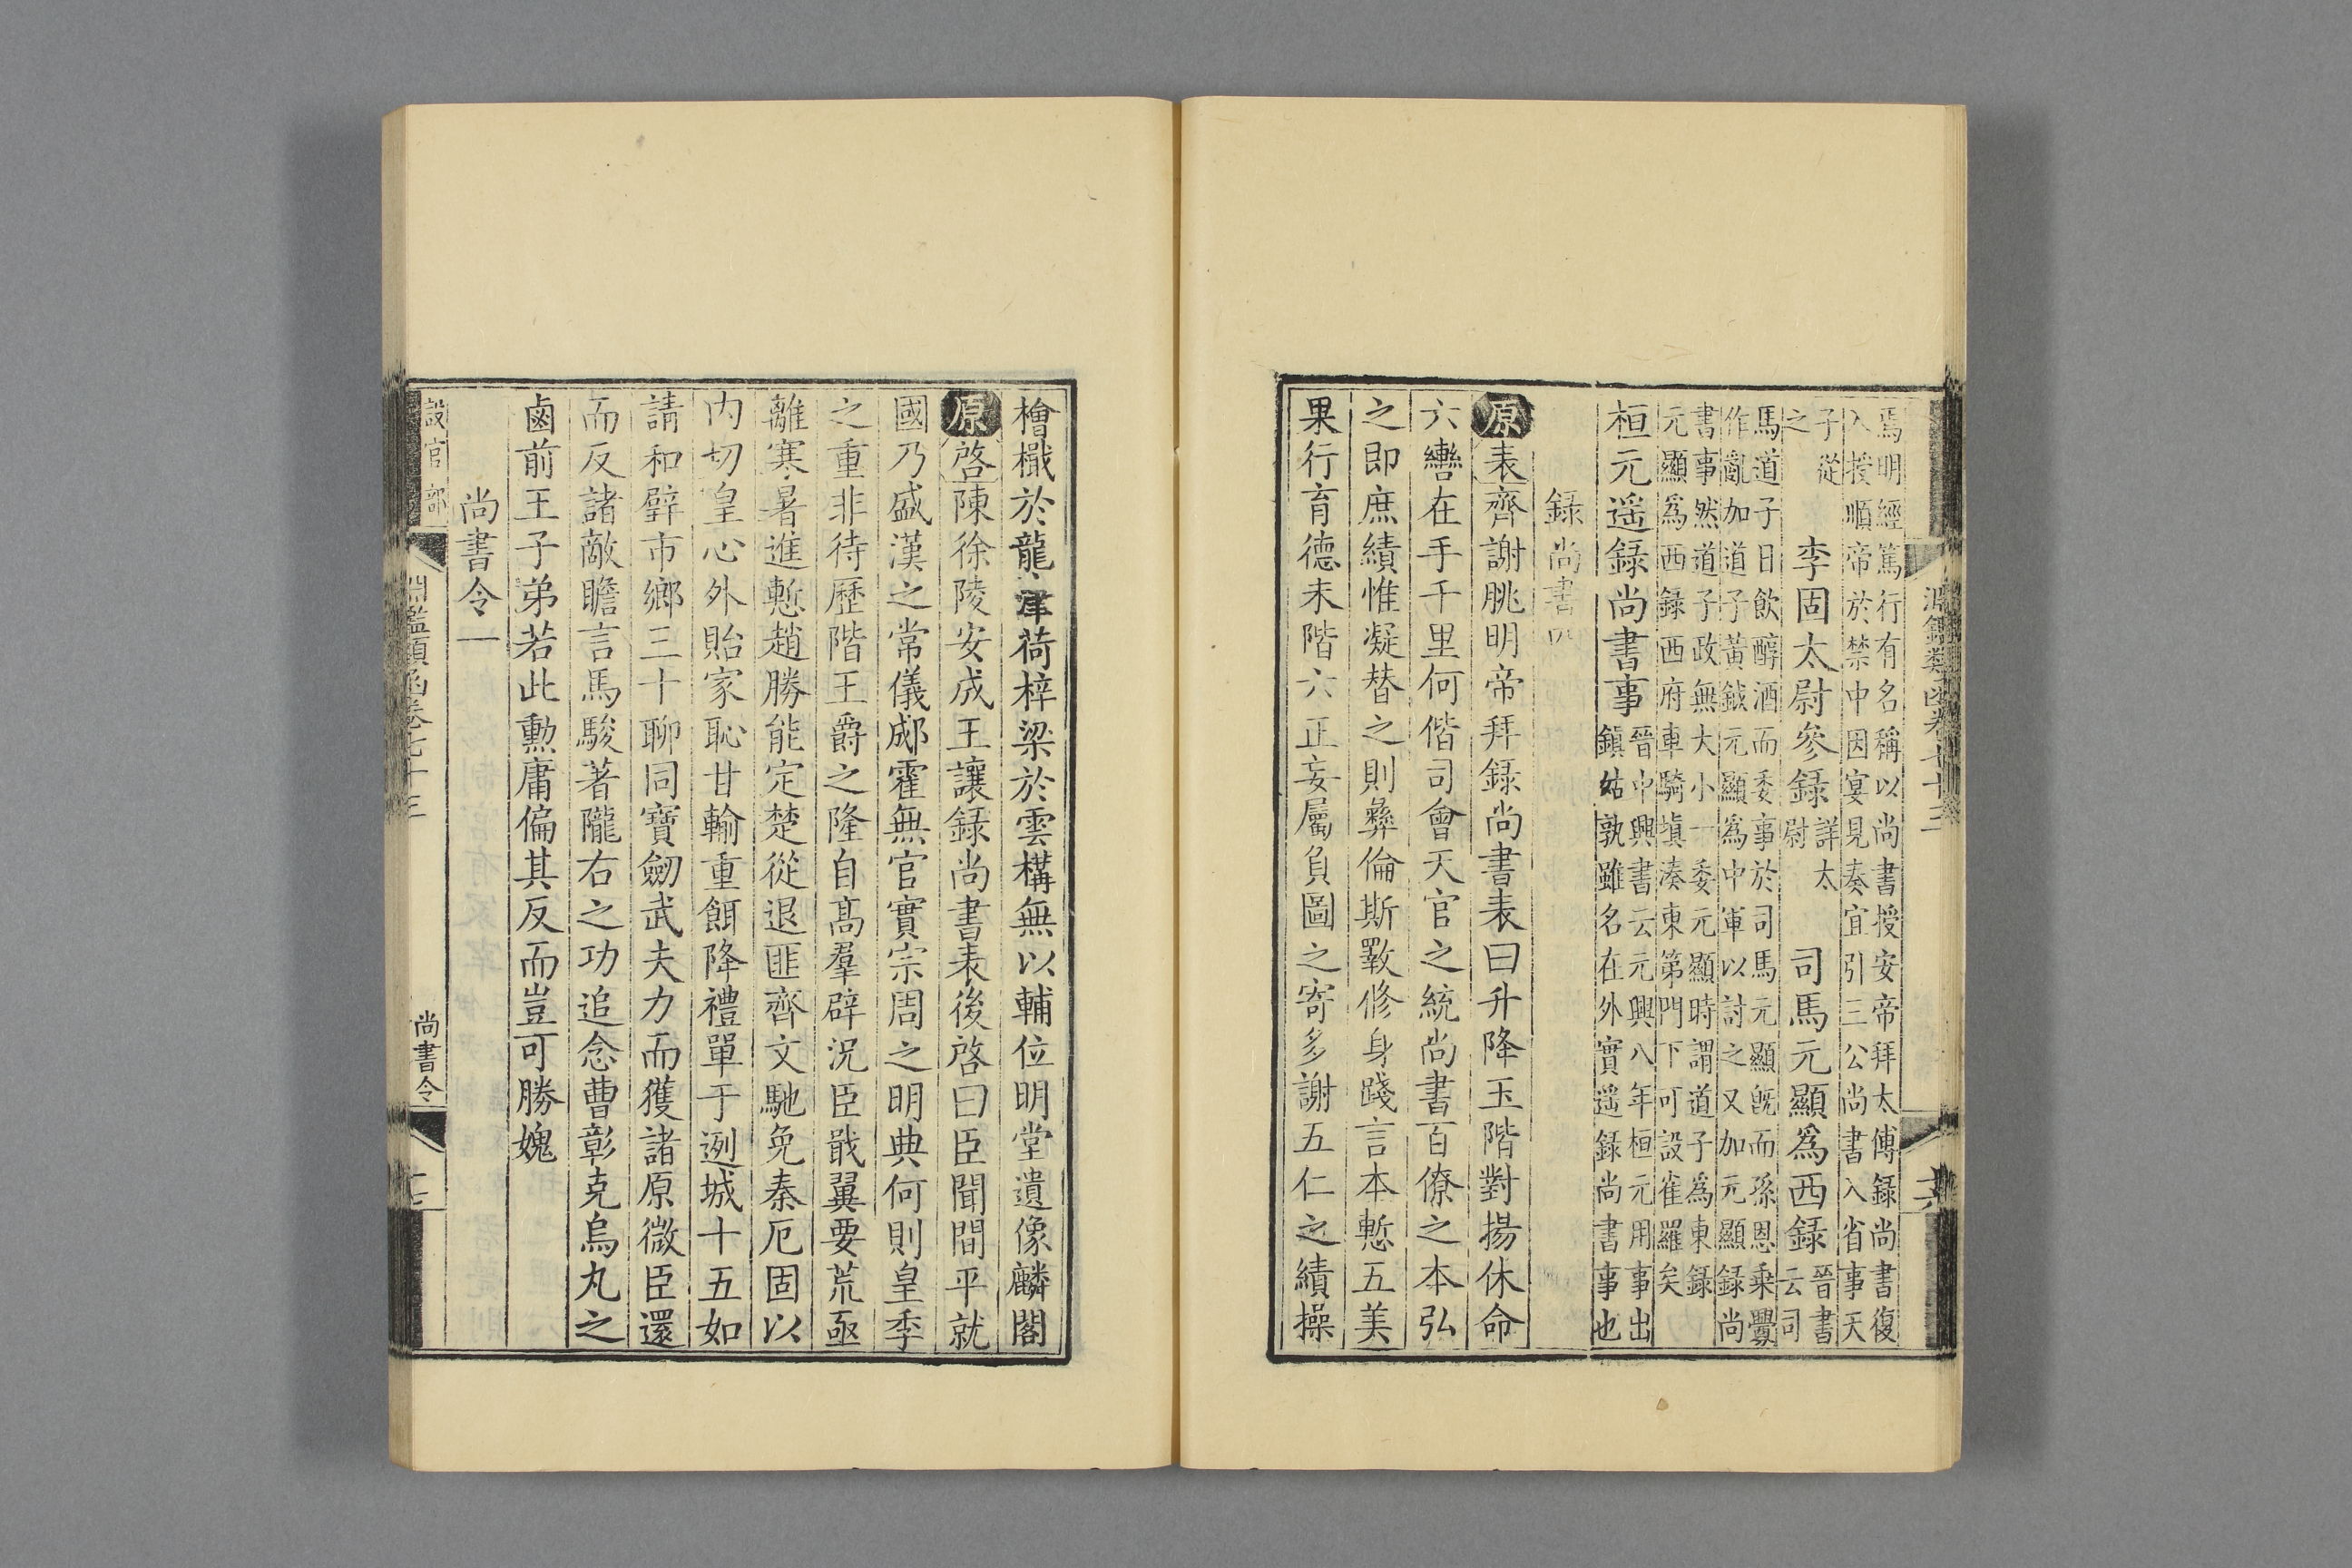 焉明經篤行有名稱以尚書授安帝拜太傅錄尚書復
入授順帝於禁中因宴見奏宜引三公尚書入省事天
子從
之
李固太尉參錄
詳太
尉
司馬元顯爲西錄
晉書
云司
馬道子日飲醇酒而委事於司馬元顯旣而孫恩乘釁
作亂加道子黃鉞元顯爲中軍以討之又加元顯錄尚
書事然道子政無大小一委元顯時謂道子爲東錄
元顯爲西錄西府車騎塡湊東第門下可設雀羅矣
桓元遥錄尚書事
晉中興書云元興八年桓元用事出
鎭姑孰雖名在外實遥錄尚書事也
錄尚書四
原表齊謝朓明帝拜錄尚書表曰升降玉階對揚休命
六轡在手千里何偕司會天官之統尚書百僚之本弘
之即庶績惟凝替之則彝倫斯斁修身踐言本慙五美
果行育德未階六正妄屬負圖之寄多謝五仁之績操
淵鑑類函卷七十三
檜檝於龍津荷梓梁於雲構無以輔位明堂遺像麟閣
原啓陳徐陵安成王讓錄尚書表後啓曰臣聞閒平就
國乃盛漢之常儀郕霍無官實宗周之明典何則皇季
之重非待歷階王爵之隆自高羣辟況臣戢翼要荒亟
離寒暑進慙趙勝能定楚從退匪齊文馳免秦厄固以
內切皇心外貽家恥甘輸重餌降禮單于迾城十五如
請和璧市鄉三十聊同寶劒武夫力而獲諸原微臣還
而反諸敵瞻言馬駿著隴右之功追念曹彰克烏丸之
鹵前王子弟若此勳庸偏其反而豈可勝媿
尚書令一
設官部
淵鑑類函卷七十三
尚書令